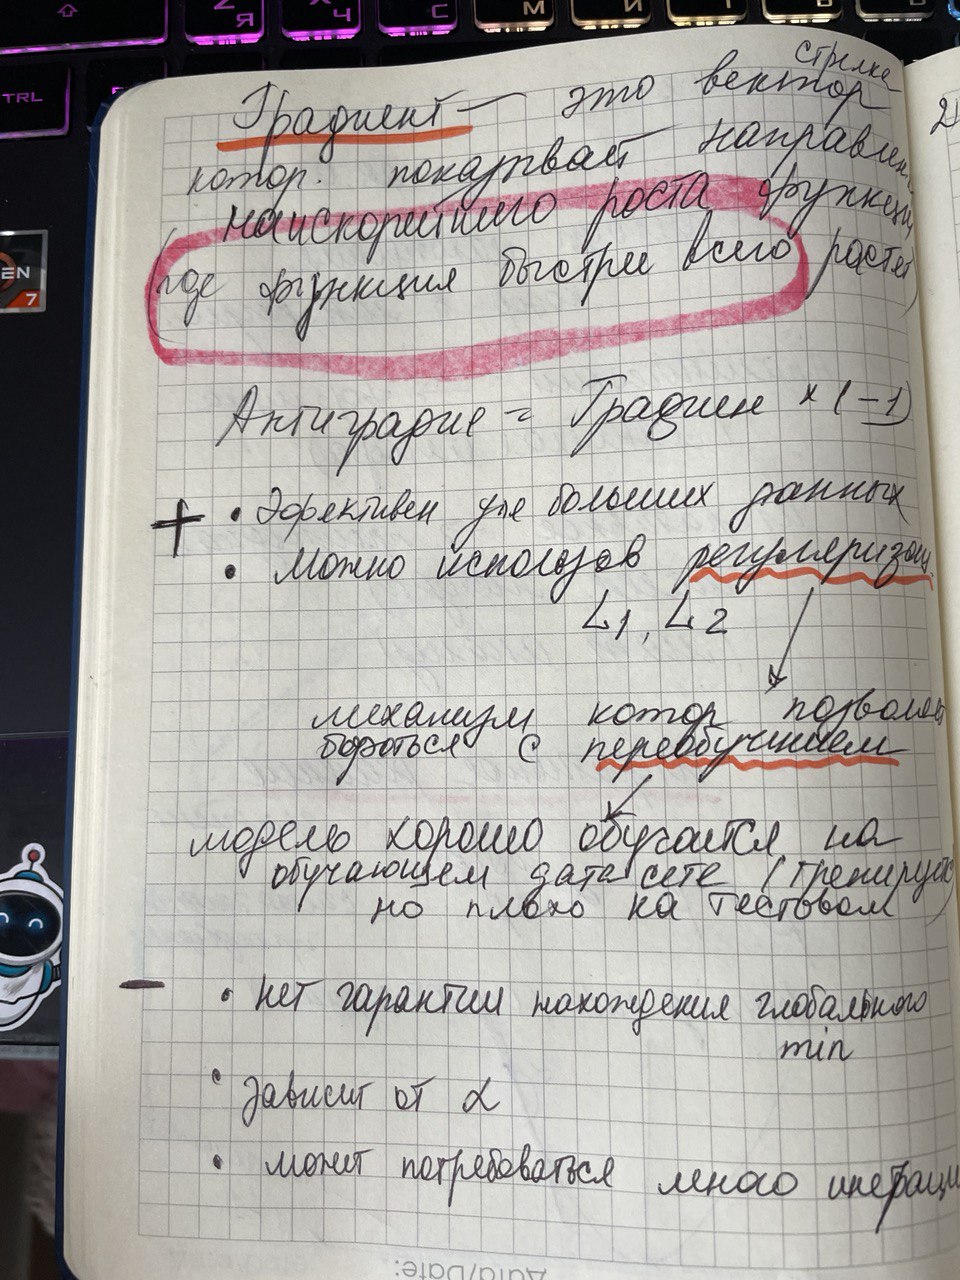 TRL
Z
Я
Ч
С
М
И
EN
7
стрелка
Градиент — это вектор
котор. показывает направлен
наискорейшего роста функции
(где функция быстрее всего растет)
Антиградие = Градиен × (-1)
+ • Эфективен для больших данных
• Можно использов регуляризац.
L1, L2
механизм котор позволяет
бороться с переобучением
модель хорошо обучается на
обучающем датасете (тренируюс)
но плохо на тестовом
— • нет гарантии нахождения глобального
min
• зависит от α
• может потребоваться много итерации
Дата/Date: